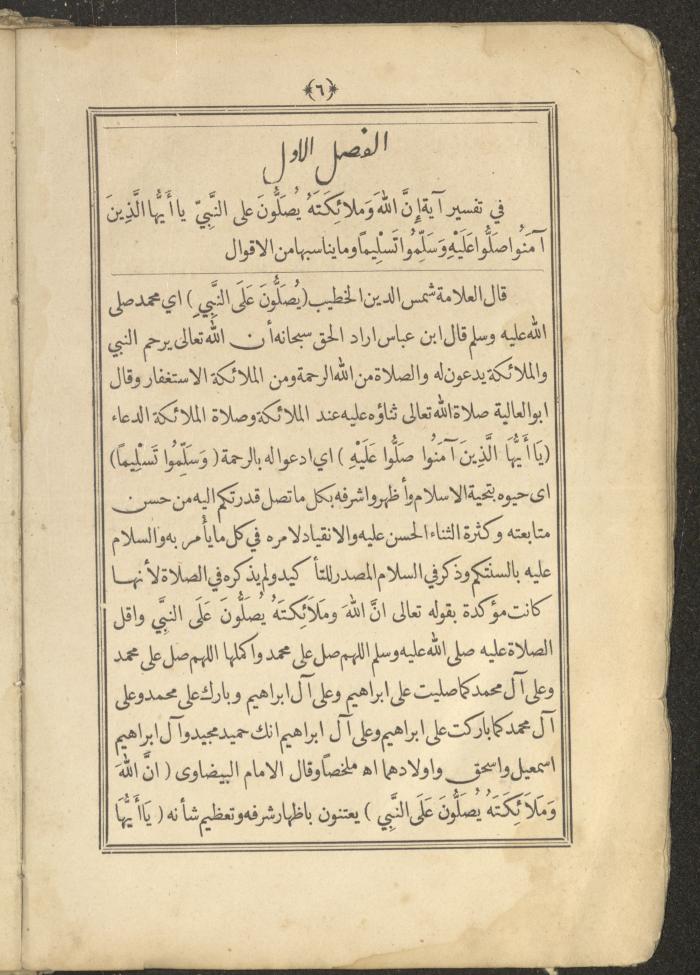 ﴿٦﴾
الفصل الاول
في تفسير آية إِنَّ اللهَ وَمَلائِكَتَهُ يُصَلُّونَ على النَّبِيّ يا أَيُّهَا الَّذِينَ
آمَنُوا صَلُّوا عَلَيْهِ وَسَلِّمُوا تَسْلِيمًا وما يناسبها من الاقوال
قال العلامة شمس الدين الخطيب (يُصَلُّونَ عَلَى النَّبِيِ) اي محمد صلى
الله عليه وسلم قال ابن عباس اراد الحق سبحانه أن الله تعالى يرحم النبي
والملائكة يدعون له والصلاة من الله الرحمة ومن الملائكة الاستغفار وقال
ابو العالية صلاة الله تعالى ثناؤه عليه عند الملائكة وصلاة الملائكة الدعاء
(يَا أَيُّهَا الَّذِينَ آمَنُوا صَلُّوا عَلَيْهِ) اي ادعوا له بالرحمة (وَسَلِّمُوا تَسْلِيماً)
اى حيوه بتحية الاسلام وأظهروا شرفه بكل ما تصل قدرتكم اليه من حسن
متابعته وكثرة الثناء الحسن عليه والانقياد لامره في كل ما يأمر به والسلام
عليه بالسنتكم وذكر في السلام المصدر للتأكيد ولم يذكره في الصلاة لأنها
كانت مؤكدة بقوله تعالى انَّ اللهَ وَملَائِكتَهُ يُصَلُّونَ عَلَى النبِيَّ واقل
الصلاة عليه صلى الله عليه وسلم اللهم صل على محمد واكملها اللهم صل على محمد
وعلى آل محمد كما صليت على ابراهيم وعلى آل ابراهيم وبارك على محمد وعلى
آل محمد كما باركت على ابراهيم وعلى آل ابراهيم انك حميد مجيد وآل ابراهيم
اسمعيل واسحق واولادهما اه ملخصاً وقال الامام البيضاوى (انَّ اللهَ
وَمَلَائِكَتَهُ يُصَلُّونَ عَلَى النَّبِي) يعتنون باظهار شرفه وتعظيم شأنه (يَا أَيُّهَا